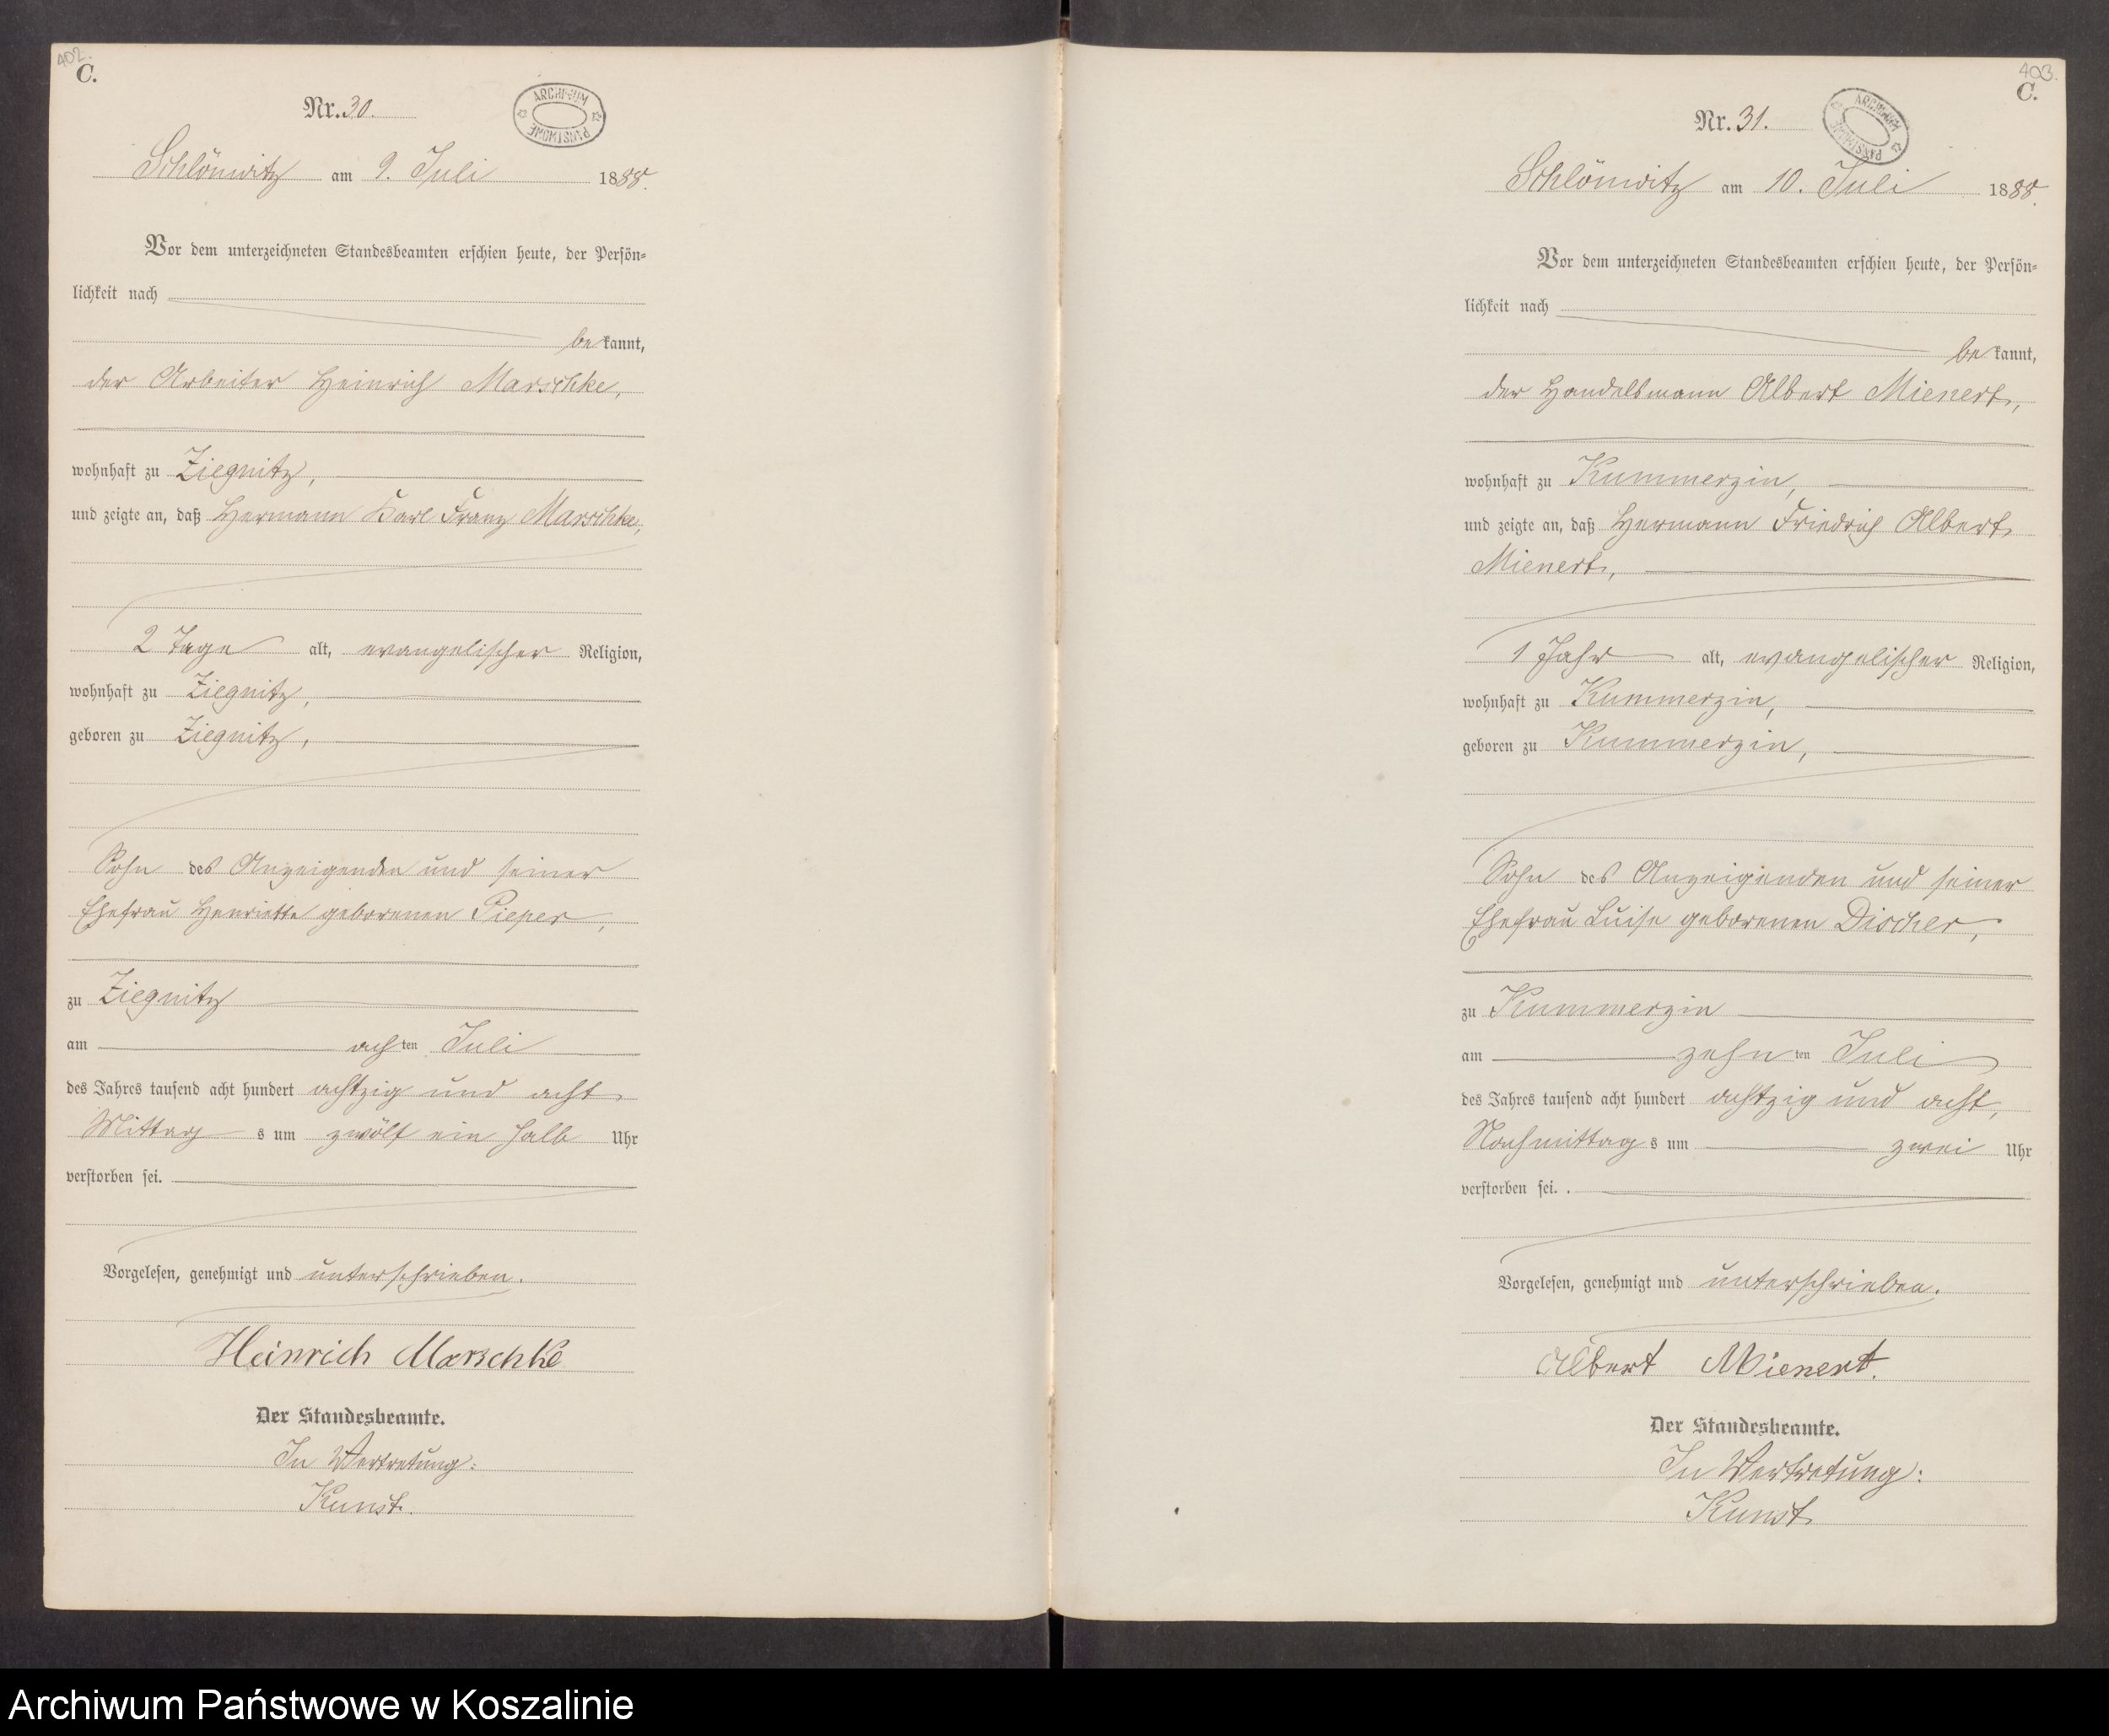 402.
C.
Nr. 30.
ARCHIWUM PAŃSTWOWE
Schlönwitz am 9. Juli 1888.
Vor dem unterzeichneten Standesbeamten erschien heute, der Persön-
lichkeit nach
bekannt,
der Arbeiter Heinrich Marschke,
wohnhaft zu Ziegnitz,
und zeigte an, daß Hermann Karl Franz Marschke,
2 Tage alt, evangelischer Religion,
wohnhaft zu Ziegnitz,
geboren zu Ziegnitz,
Sohn des Anzeigenden und seiner
Ehefrau Henriette geborenen Pieper,
zu Ziegnitz
am achten Juli
des Jahres tausend acht hundert achtzig und acht
Mittags um zwölf ein halb Uhr
verstorben sei.
Vorgelesen, genehmigt und unterschrieben.
Heinrich Marschke
Der Standesbeamte.
In Vertretung:
Kunst.
403.
C.
Nr. 31.
ARCHIWUM PAŃSTWOWE
Schlönwitz am 10. Juli 1888.
Vor dem unterzeichneten Standesbeamten erschien heute, der Persön-
lichkeit nach
bekannt,
der Handelsmann Albert Mienert,
wohnhaft zu Kummerzin,
und zeigte an, daß Hermann Friedrich Albert
Mienert,
1 Jahr alt, evangelischer Religion,
wohnhaft zu Kummerzin,
geboren zu Kummerzin,
Sohn des Anzeigenden und seiner
Ehefrau Luise geborenen Discher,
zu Kummerzin
am zehnten Juli
des Jahres tausend acht hundert achtzig und acht,
Nachmittags um zwei Uhr
verstorben sei.
Vorgelesen, genehmigt und unterschrieben.
Albert Mienert.
Der Standesbeamte.
In Vertretung:
Kunst
Archiwum Państwowe w Koszalinie